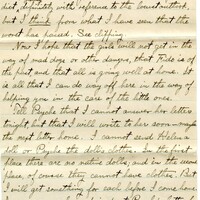 diet, definitely with reference to the lowest author,
but I think from what I have seen that the
worst has passed. See clipping.
Now I hope that the girls will not get in the
way of mad dogs or other danger, that Ride is of
the past, and that all is going well at home. It
is all that I can do way off here in the way of
helping you in the care of the little ones.
Tell Psyche that I cannot answer her letter
tonight but that I will write to her soon - maybe
the next letter home. I cannot send Helena
doll or Psyche the dolls clothes. In the first
place there are no native dolls, and in the second
place, of course they cannot have clothes. But
I will get something for each before I come home